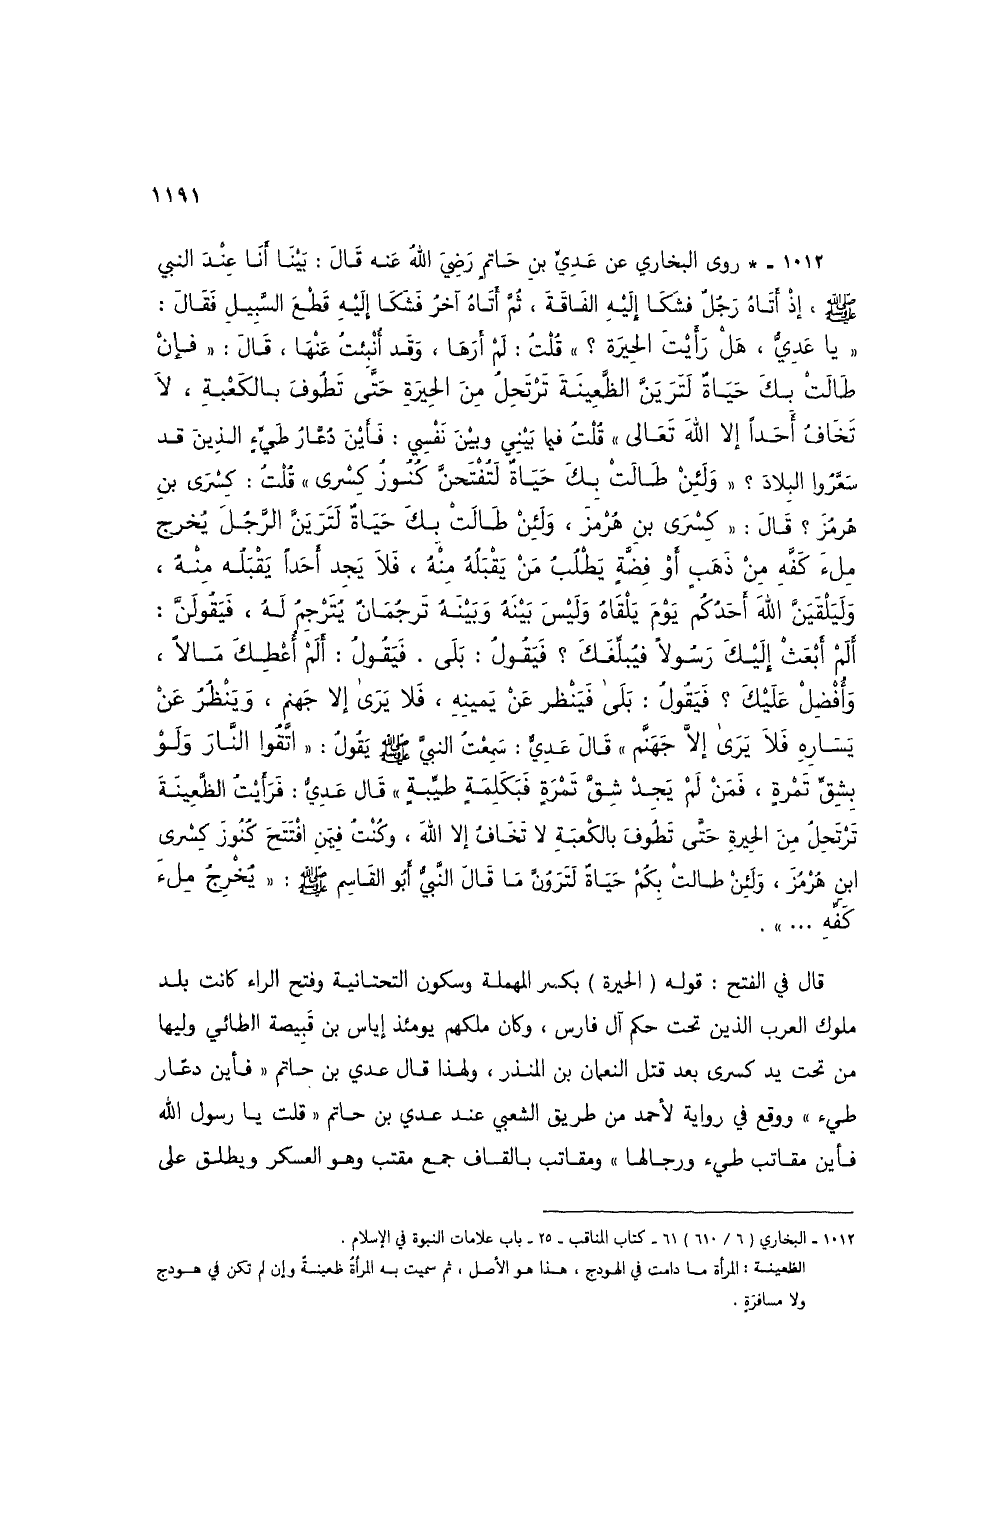 ١١٩١
١٠١٢ - * روى البخاري عن عَدِيِّ بنِ حَاتمٍ رَضِيَ اللهُ عَنه قَالَ : بَيْنَا أَنَا عِنْدَ النبي
ﷺ ، إذْ أَتَاهُ رَجُلٌ فشكَا إلَيْهِ الفَاقَةَ ، ثُمَّ أَتَاهُ آخرُ فَشَكَا إلَيْهِ قَطْعَ السَّبِيلِ فَقَالَ :
« يا عَدِيُّ ، هَلْ رَأَيْتَ الحِيَرةَ ؟ » قُلْتُ : لَمْ أَرَهَا ، وَقَد أُنْبِئتُ عَنْهَا ، قَالَ : « فإنْ
طَالَتْ بِكَ حَيَاةٌ لَتَرَيَنَّ الظَّعِينَةَ تَرْتَحِلُ مِنَ الحِيَرةِ حَتَّى تَطُوفَ بالكَعْبةِ ، لاَ
تَخَافُ أَحَداً إلا اللهَ تَعَالى » قُلْتُ فيما بَيْنِي وبيْنَ نَفْسِي : فَأَيْنَ دُعَّارُ طَيِّءٍ الذِينَ قد
سَعَّرُوا البِلادَ ؟ « وَلَئِنْ طَالَتْ بِكَ حَيَاةٌ لَتُفْتَحنَّ كُنُوزُ كِسْرى » قُلْتُ : كِسْرَى بنِ
هُرمُزَ ؟ قَالَ : « كِسْرَى بنِ هُرْمزَ ، وَلَئِنْ طَالَتْ بِكَ حَيَاةٌ لَتَرَيَنَّ الرَّجُلَ يُخرج
مِلءَ كَفِّهِ مِنْ ذَهَبٍ أَوْ فِضَّةٍ يَطْلُبُ مَنْ يَقْبَلُهُ مِنْهُ ، فَلاَ يَجِد أَحَداً يَقْبَلُه مِنْهُ ،
وَلَيَلْقَيَنَّ اللهَ أَحَدُكُم يَوْمَ يَلْقَاهُ وَلَيْسَ بَيْنَهُ وَبَيْنَهُ تَرجُمَانٌ يُتَرْجِمُ لَهُ ، فَيَقُولَنَّ :
أَلَمْ أَبْعَثْ إلَيْكَ رَسُولاً فيُبلِّغَكَ ؟ فَيَقُولُ : بَلَى . فَيَقُولُ : أَلَمْ أُعْطِكَ مَالاً ،
وَأُفْضِلْ عَلَيْكَ ؟ فَيَقُولُ : بَلَىٰ فَيَنْظر عَنْ يَمينِهِ ، فَلا يَرَىٰ إلا جهنم ، وَيَنْظُرُ عَنْ
يَسَارِهِ فَلاَ يَرَىٰ إلاَّ جَهَنَّم » قَالَ عَدِيٌّ : سَمِعْتُ النبيَّ ﷺ يَقُولُ : « اتَّقُوا النَّارَ وَلَوْ
بِشِقِّ تَمْرةٍ ، فَمَنْ لَمْ يَجِدْ شِقَّ تَمْرَةٍ فَبَكَلِمَةٍ طَيِّبةٍ » قَال عَدِيٌّ : فَرَأَيْتُ الظَّعِينَةَ
تَرْتَحِلُ مِنَ الحِيرةِ حَتَّى تَطُوفَ بِالكَعْبَةِ لا تَخَافُ إلا اللهَ ، وكُنْتُ فِيمَن افْتَتَحَ كُنُوزَ كِسْرى
ابنِ هُرْمُزَ ، وَلَئِنْ طالتْ بِكُمْ حَيَاةٌ لَتَرَوُنَّ مَا قَالَ النَّبِيُّ أَبُو القَاسِمِ ﷺ : « يُخْرِجُ مِلءَ
كَفِّهِ ... » .
قال في الفتح : قوله ( الحيرة ) بكسر المهملة وسكون التحتانية وفتح الراء كانت بلد
ملوك العرب الذين تحت حكم آل فارس ، وكان ملكهم يومئذ إياس بن قَبِيصة الطائي وليها
من تحت يد كسرى بعد قتل النعمان بن المنذر ، ولهذا قال عدي بن حاتم « فأين دعّار
طيء » ووقع في رواية لأحمد من طريق الشعبي عند عدي بن حاتم « قلت يا رسول الله
فأين مقاتب طيء ورجالها » ومقاتب بالقاف جمع مقتب وهو العسكر ويطلق على
١٠١٢ - البخاري ( ٦ / ٦١٠ ) ٦١ - كتاب المناقب - ٢٥ - باب علامات النبوة في الإسلام .
الظعينة : المرأة ما دامت في الهودج ، هذا هو الأصل ، ثم سميت به المرأةُ ظعينةً وإن لم تكن في هودج
ولا مسافرَةٍ .